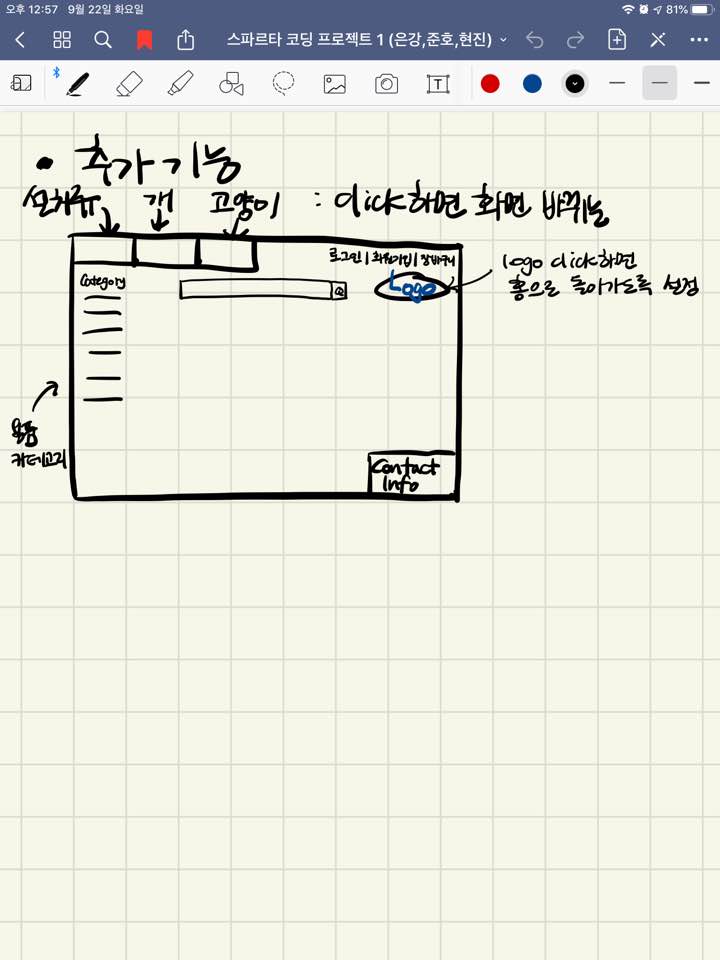 오후 12:57 9월 22일 화요일 81%
스파르타 코딩 프로젝트 1 (은강,준호,현진)
T
• 추가 기능
고양이 : click하면 화면 바뀌는
로그인 | 회원가입 | 장바구니
Category
Logo
logo click하면
홈으로 돌아가도록 설정
용품
카테고리
Contact
Info